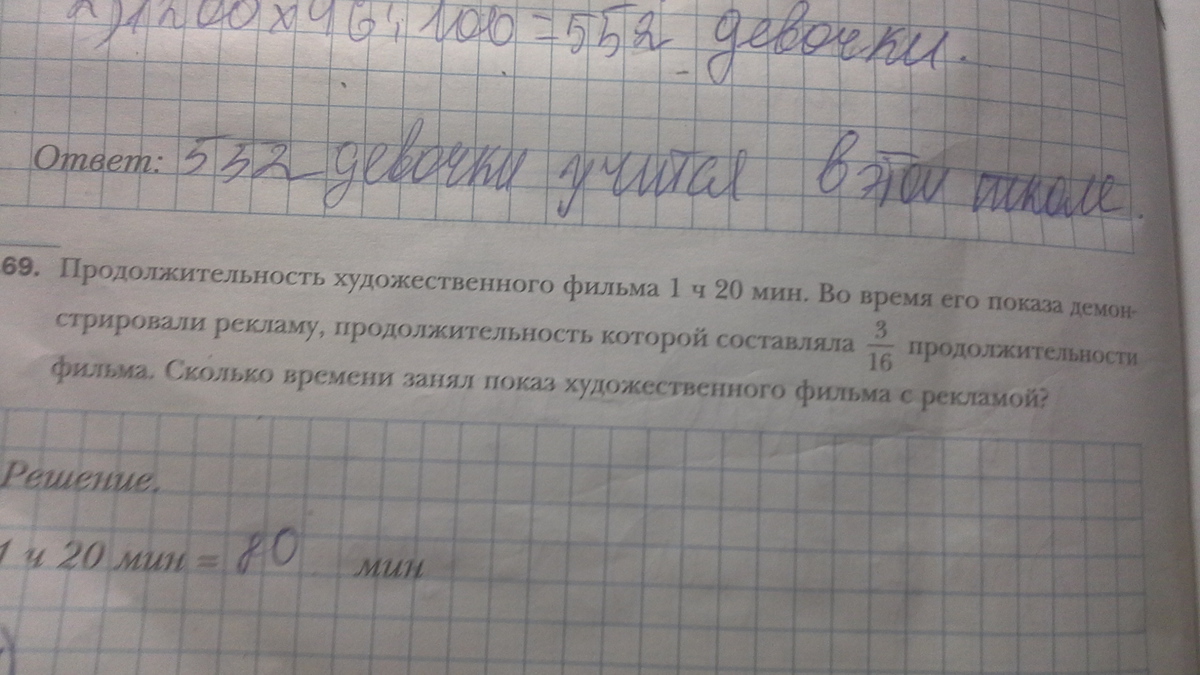 2) 1200 х 46 : 100 = 552 девочки.
Ответ: 552 девочки учится в этой школе.
69. Продолжительность художественного фильма 1 ч 20 мин. Во время его показа демон-
стрировали рекламу, продолжительность которой составляла 3/16 продолжительности
фильма. Сколько времени занял показ художественного фильма с рекламой?
Решение.
1 ч 20 мин = 80 мин